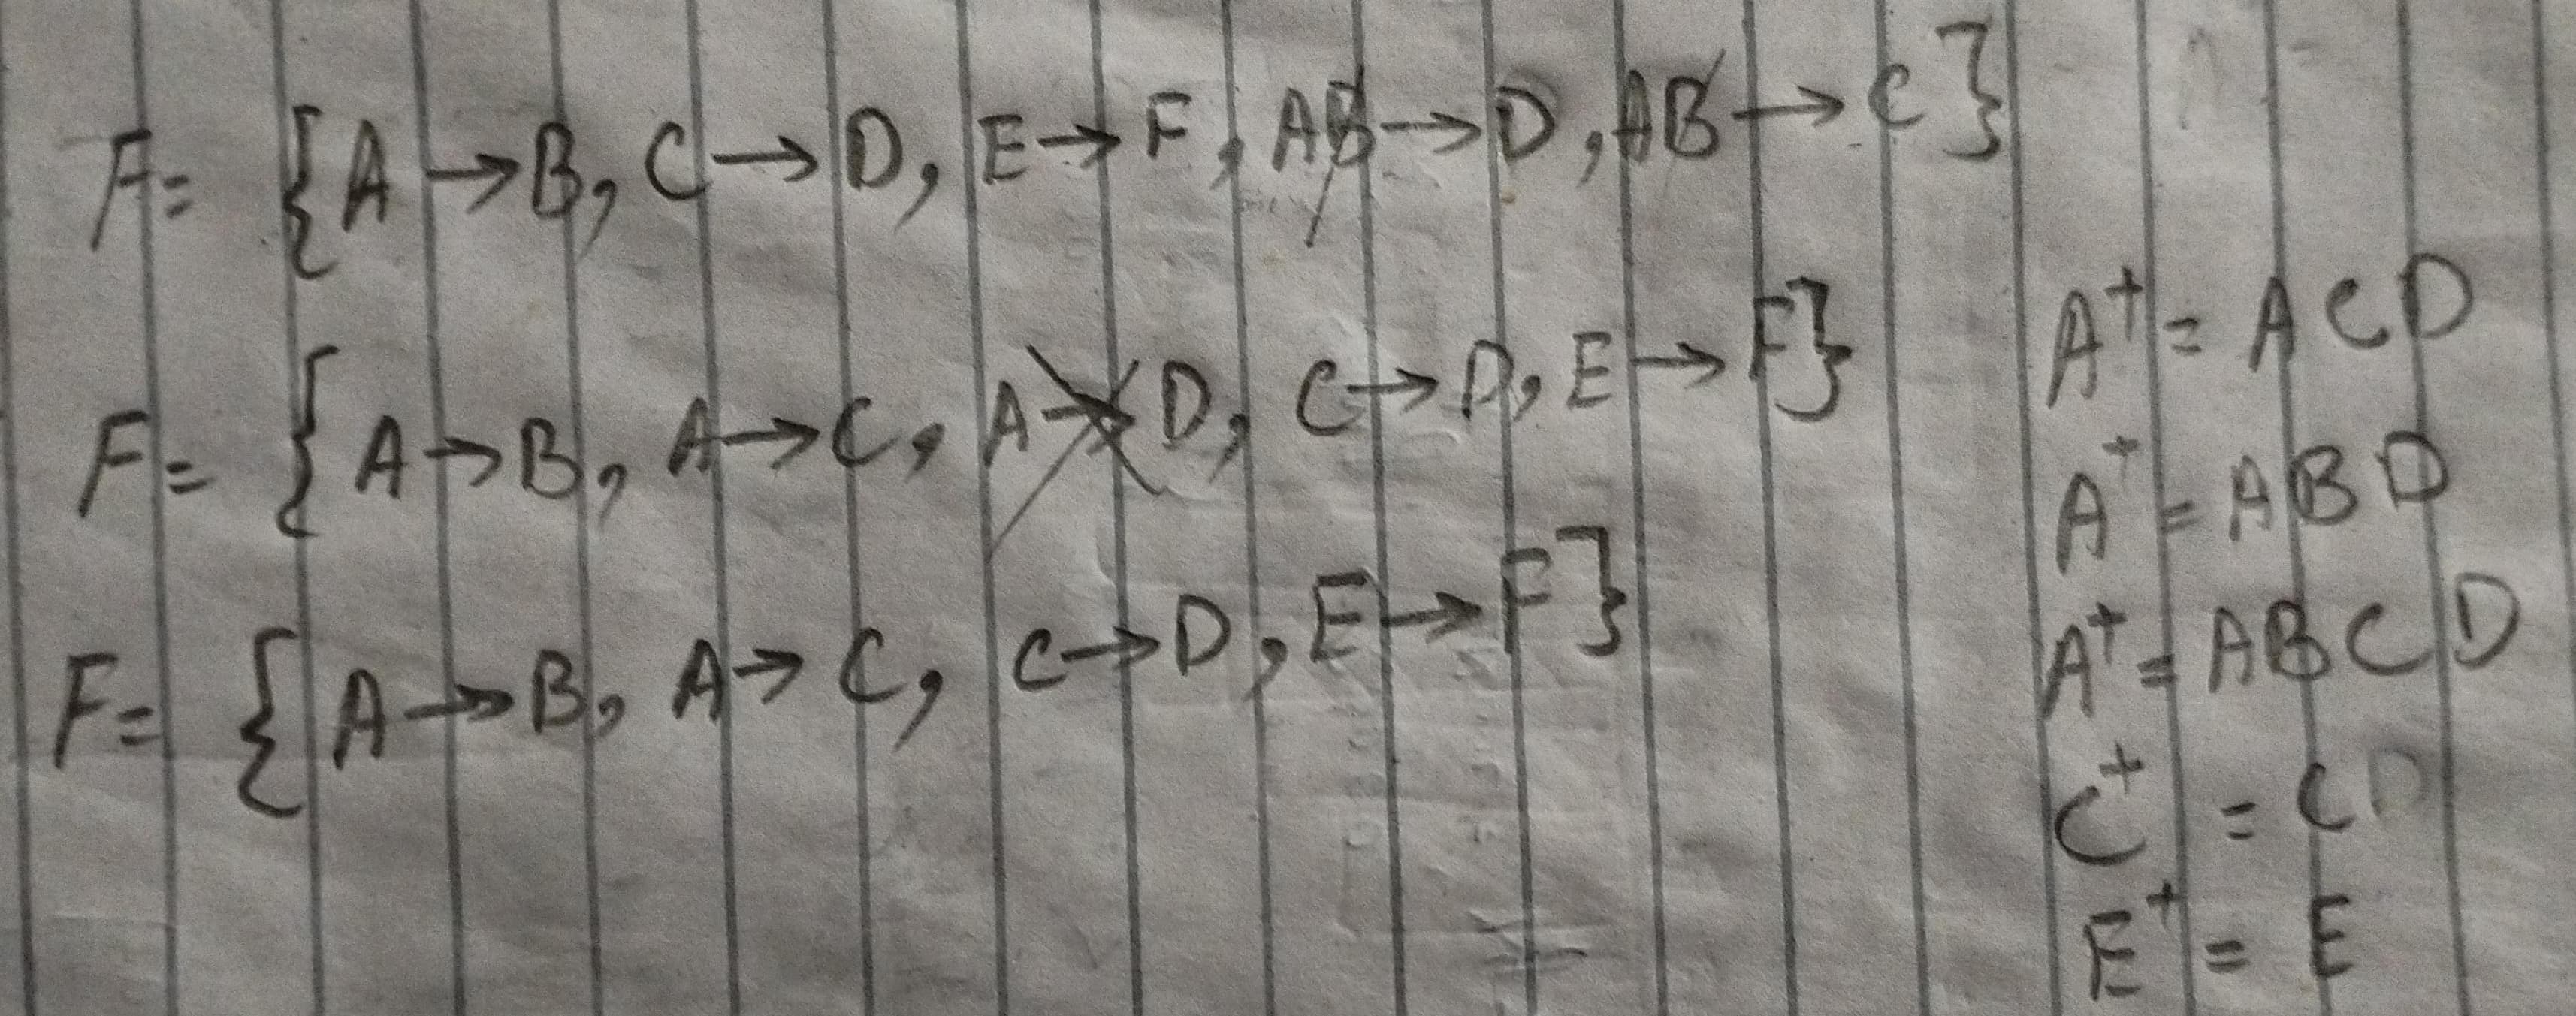 F= {A→B, C→D, E→F, AB→D, AB→C}
F= {A→B, A→C, A→D, C→D, E→F}
F= {A→B, A→C, C→D, E→F}
A⁺= ACD
A⁺= ABD
A⁺= ABCD
C⁺ = CD
E⁺ = E